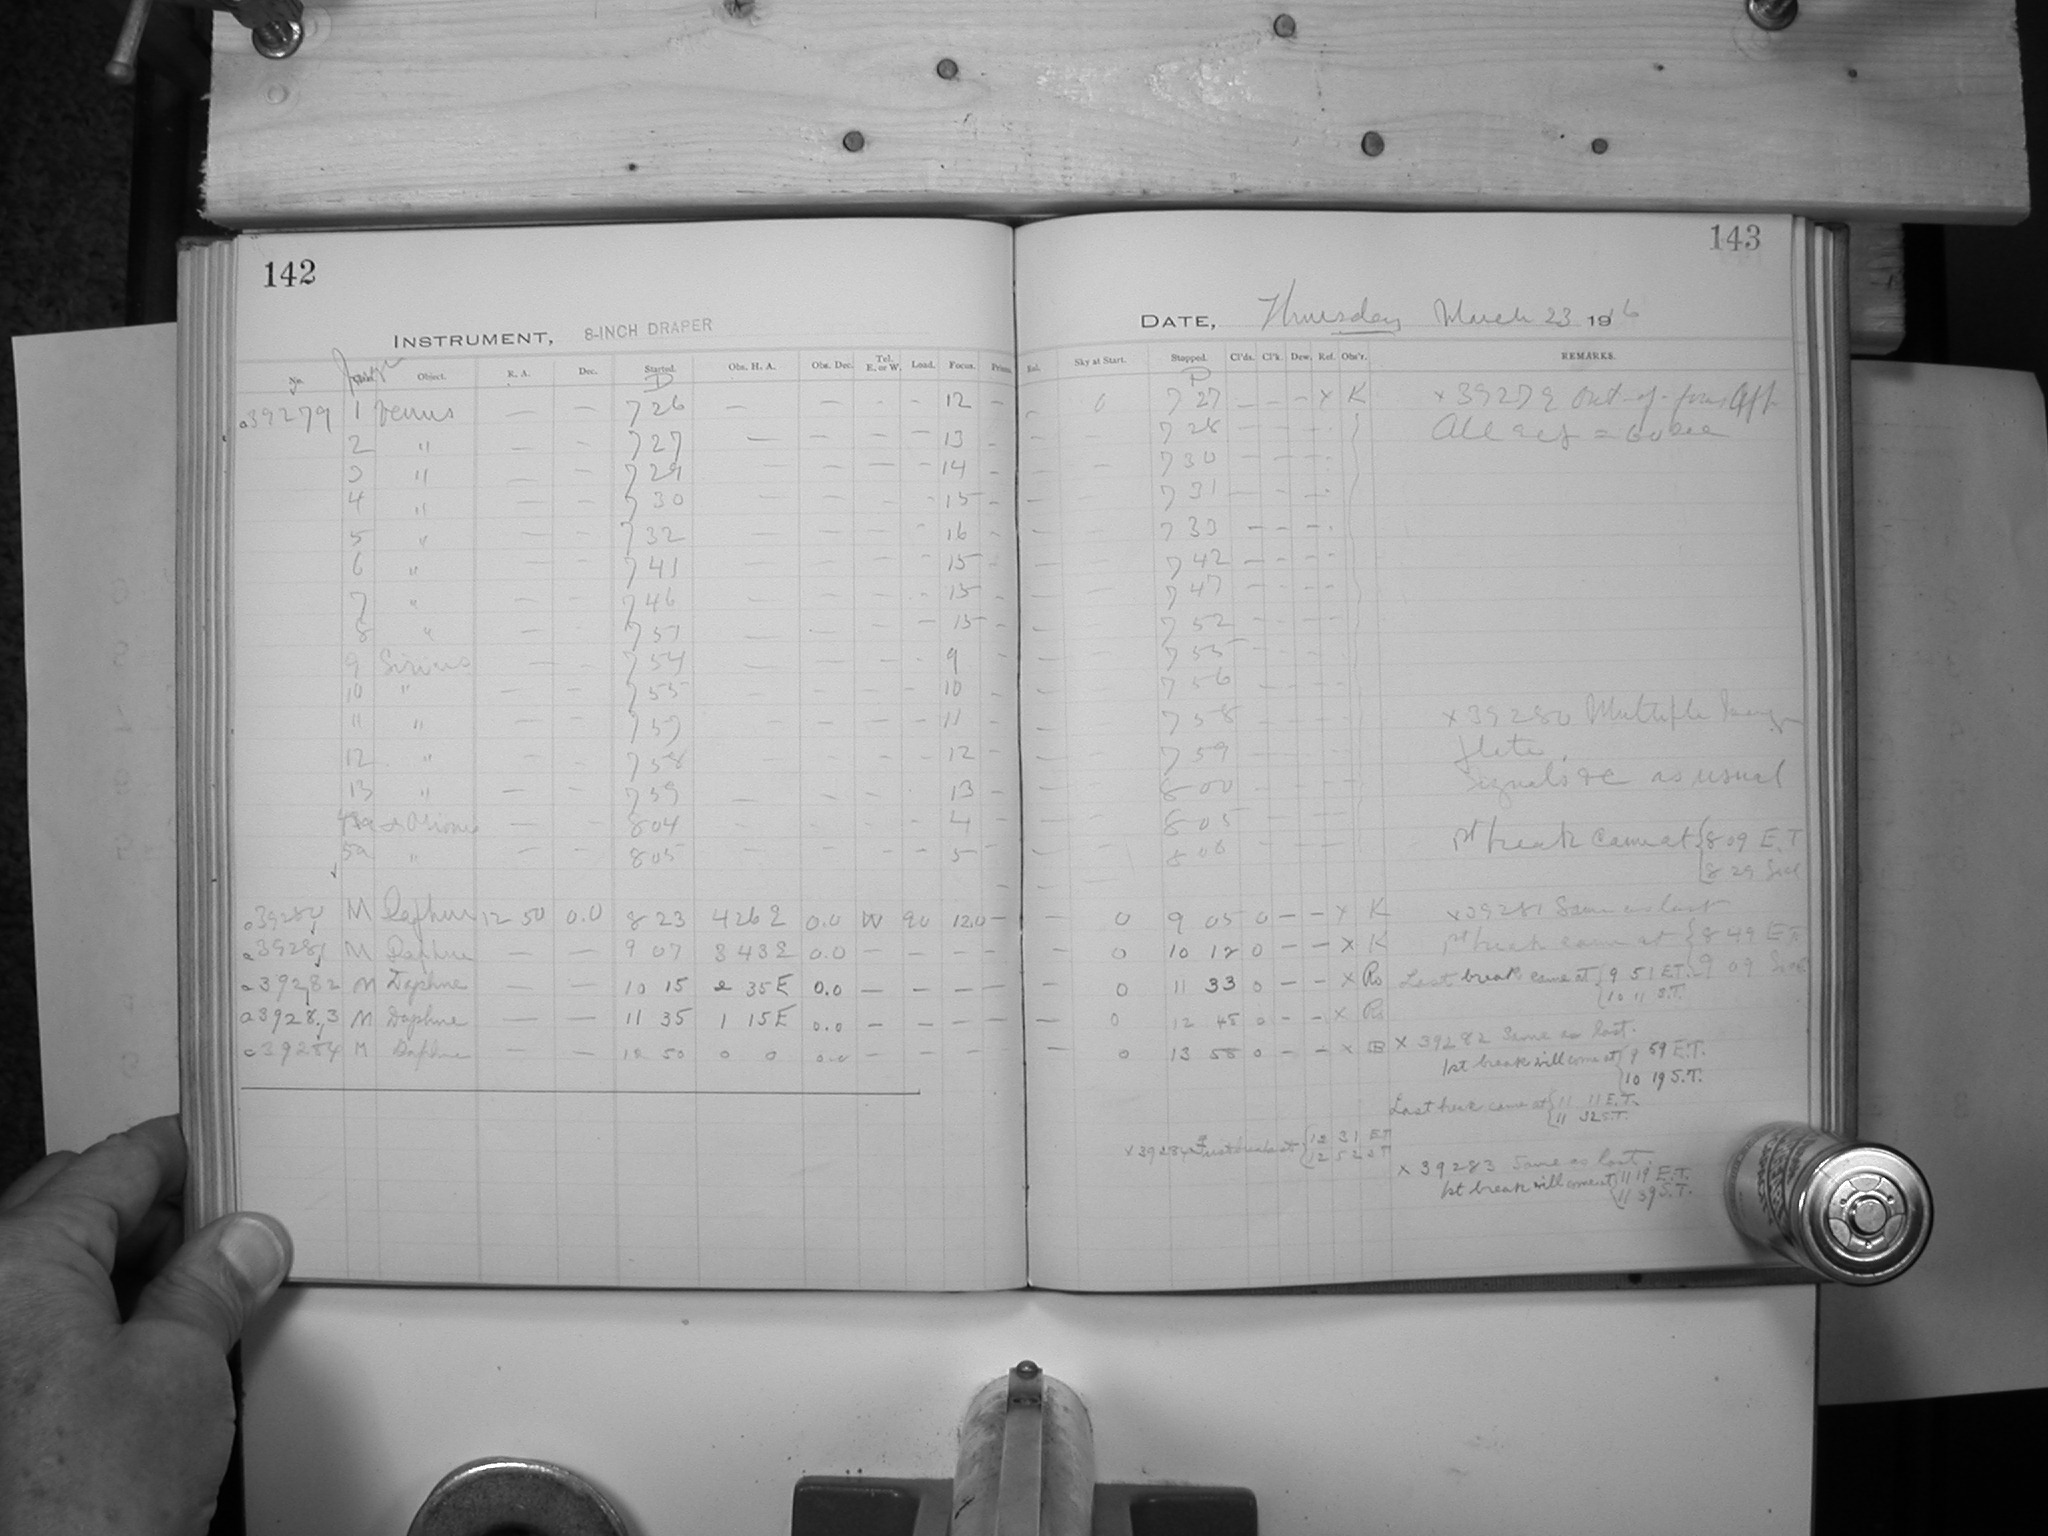 142
143
INSTRUMENT, 8-INCH DRAPER
DATE, Thursday March 23 1916
No. Object. R. A. Dec. Started. Obs. H. A. Obs. Dec. Tel. E. or W. Load. Focus. Prism.
Sky at Start. Stopped. Cl'ds. Cl'k. Dew. Ref. Obs'r. REMARKS.
a39279 1 Venus — — 7 26 — — - - 12 — 0 7 27 — — — x K x 39279 Out-of-focus
2 " 7 27 — — — — 13 7 28 All = 60 sec
3 " — — 7 29 — — — — 14 — 7 30
4 " — — 7 30 — — — - 15 — 7 31
5 " — — 7 32 — — — - 16 7 33
6 " — — 7 41 — — — - 15 7 42
7 " — — 7 46 — — — - 15 7 47
8 " — — 7 51 — — — — 15 7 52
9 Sirius — — 7 54 — — — - 9 7 55
10 " — — 7 55 — — — - 10 7 56
11 " — — 7 57 — — — - 11 7 58 x 39280 Multiple
12 " — — 7 58 — — — - 12 7 59 plate.
13 " — — 7 59 — — — 13 8 00 Signals &c as usual
α Orionis — — 8 04 — — — - 4 8 05
5a " — — 8 05 — — — - 5 8 06 1st break came at 8 09 E.T.
8 29 Sid
a39280 M Daphne 12 50 0.0 8 23 4 26 E 0.0 W 90 12.0 — 0 9 05 0 — — x K x 39281 Same as last
a39281 M Daphne — — 9 07 3 43 E 0.0 — — — — 0 10 12 0 — — x K 1st break came at 8 49 E.T.
9 09 Sid
a39282 M Daphne — — 10 15 2 35 E 0.0 — — — — 0 11 33 0 — — x Ro Last break came at 9 51 E.T.
10 11 S.T.
a39283 M Daphne — — 11 35 1 15 E 0.0 — — — — 0 12 48 0 — — x Ro
a39284 M Daphne — — 12 50 0 0 0.0 — — — — 0 13 58 0 — — x B x 39282 Same as last.
1st break will come at 9 59 E.T.
10 19 S.T.
Last break came at 11 11 E.T.
11 32 S.T.
x 39284 First break at 12 31 E.T.
12 52 S T
x 39283 Same as last.
1st break will come at 11 19 E.T.
11 39 S.T.